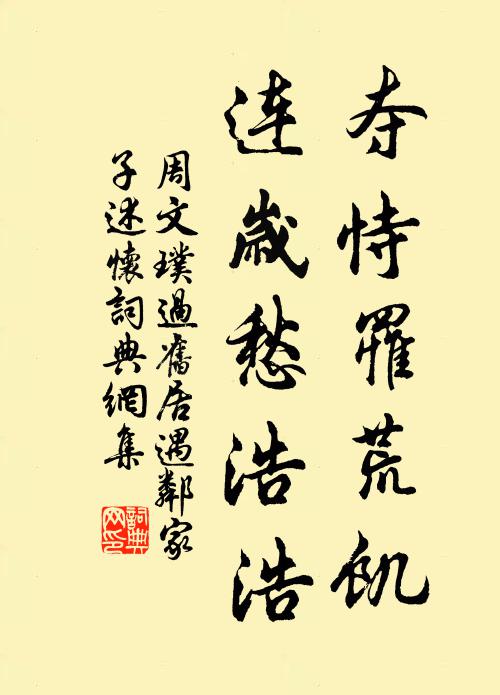 夺恃罹荒飢
連歲愁浩浩
周文璞過舊居遇鄰家
子述懷詞典網集
詞典网印